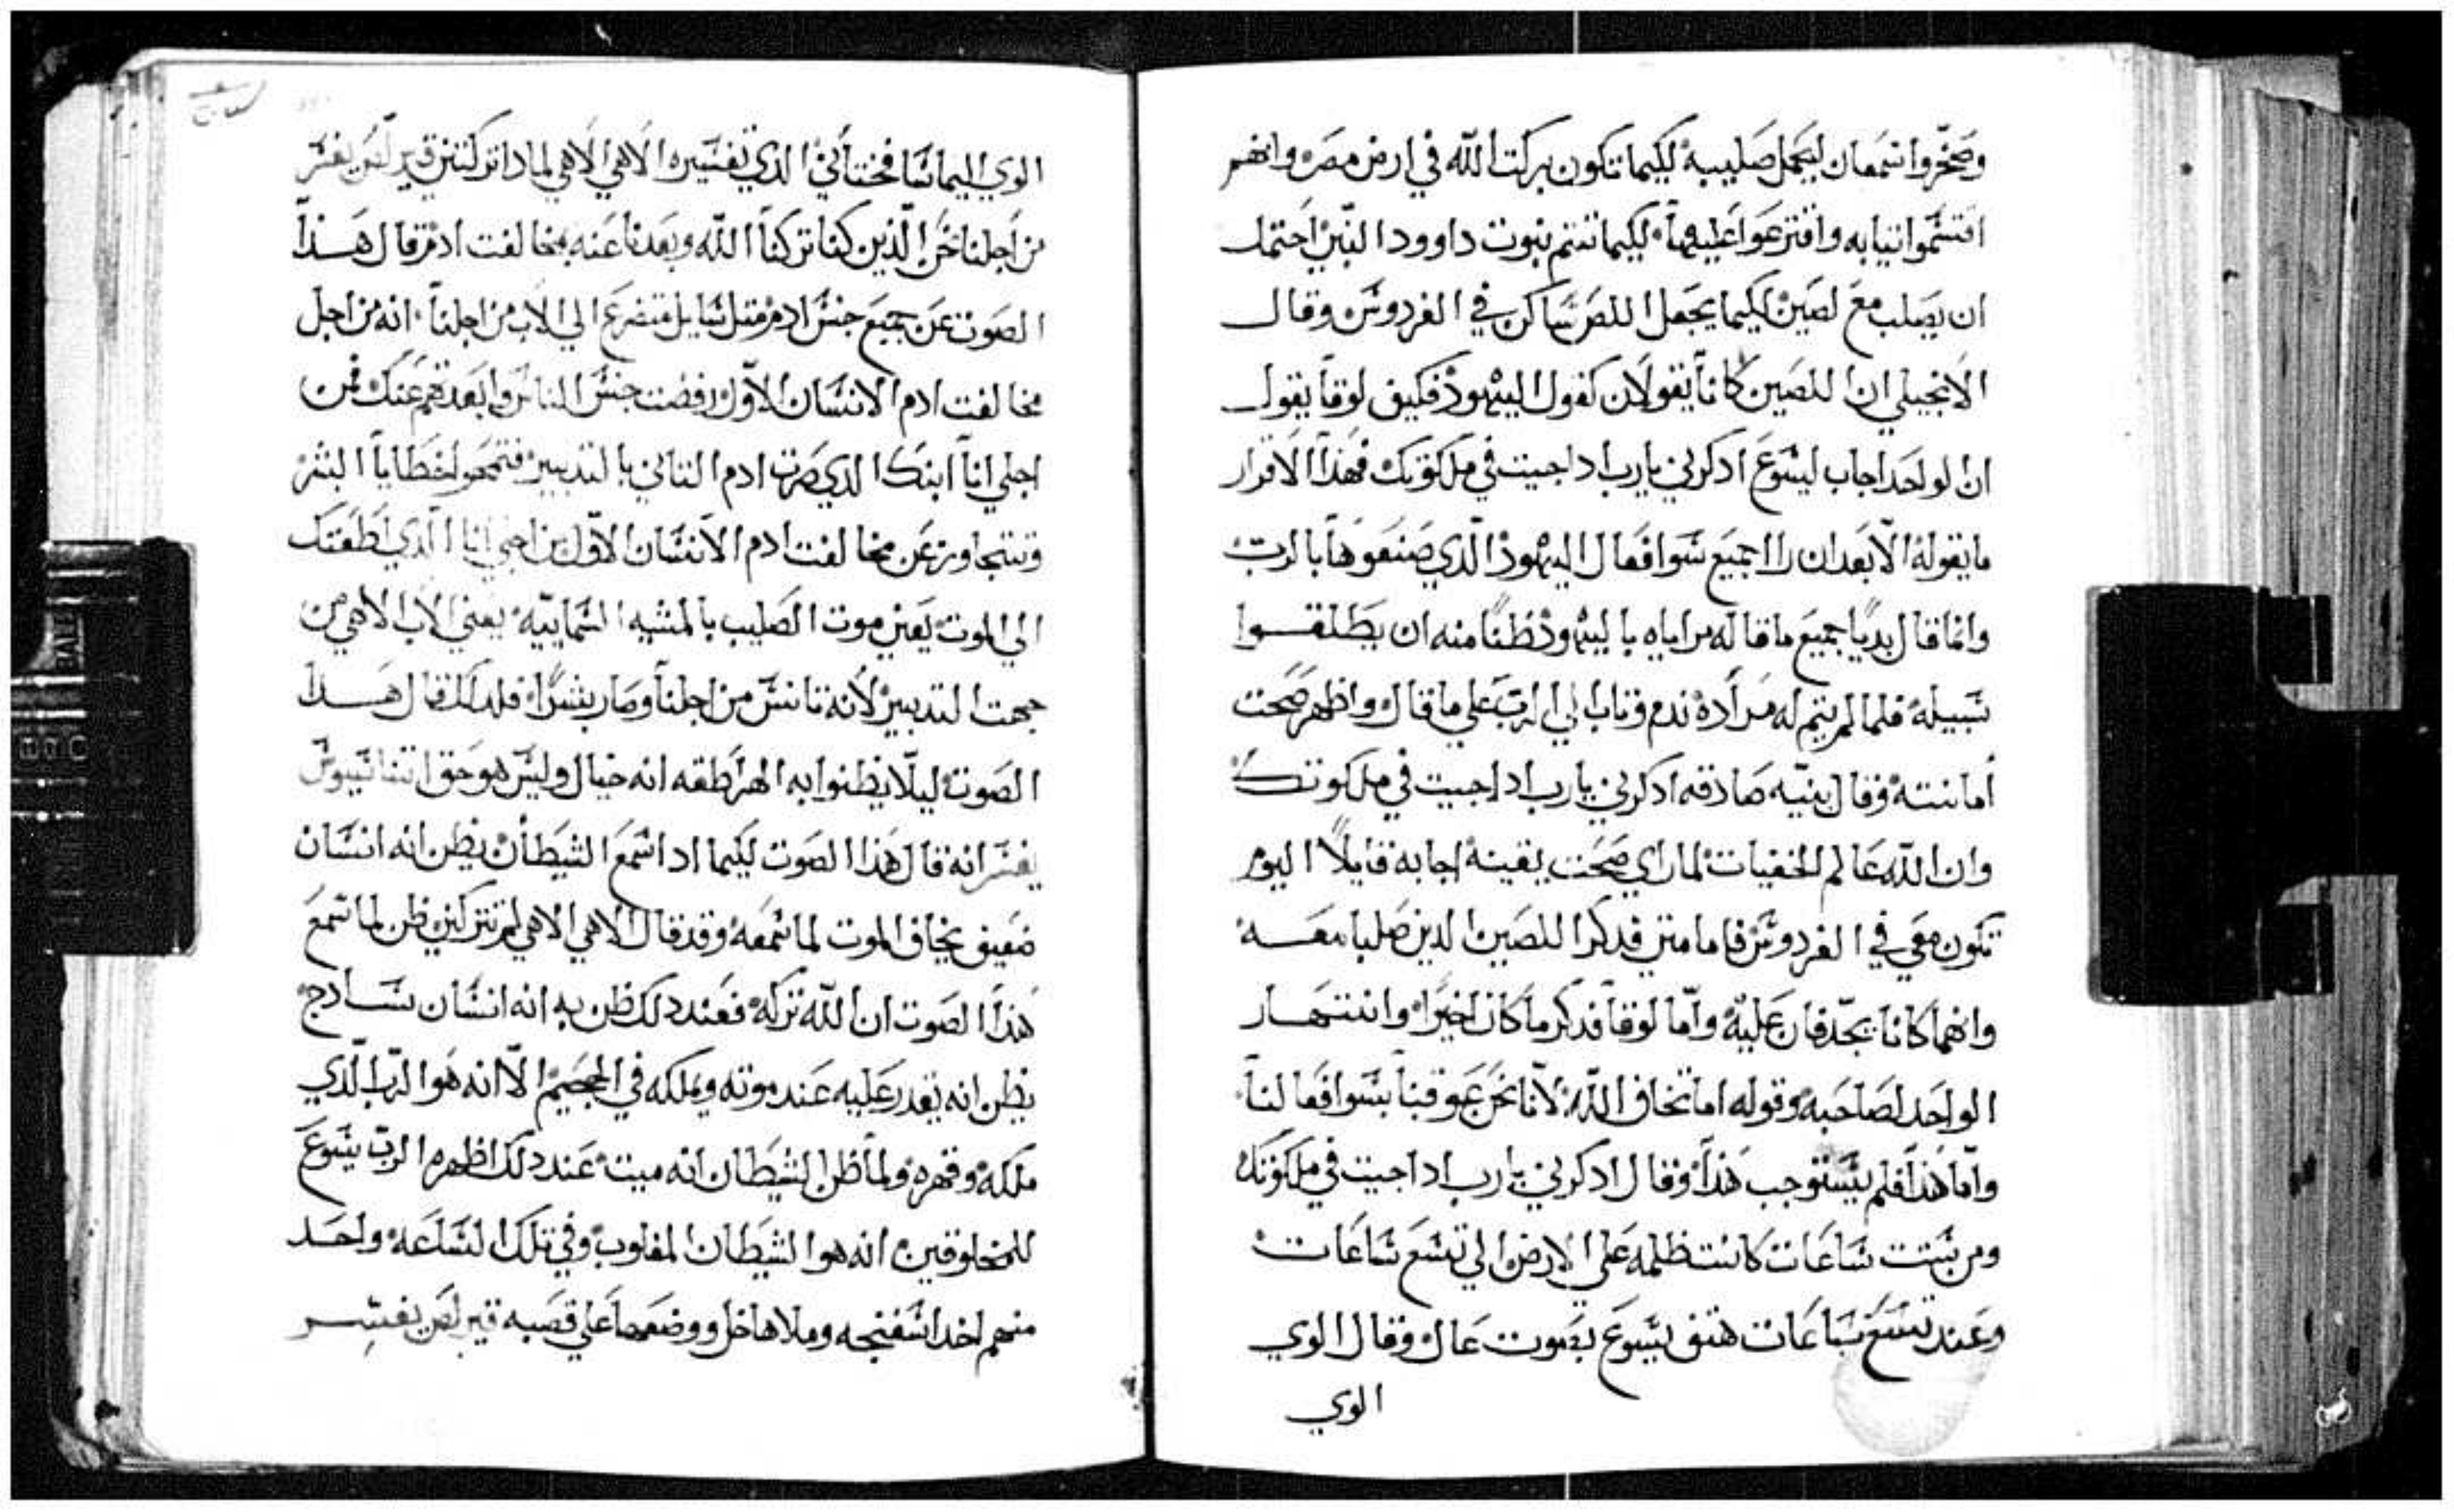 وصخروا سمعان ليحمل صليبه لكيما تكون بركت الله في ارض مصر وانهم
اقتسموا تيابه واقترعوا عليهما لكيما تتم نبوت داوود النبي احتمل
ان يصلب مع لصين لكيما يجعل اللص ساكن في الفردوس وقال
الانجيلي ان للصين كانا يقولان كقول اليهود فكيف لوقا يقول
ان لواحد اجاب ليسوع ادكرني يا رب ادا جيت في ملكوتك فهذا الاقرار
ما يقوله الا بعد ان راا جميع سوا فعال اليهود الذي صنعوها بالرب
وانما قال بديا جميع ما قاله مراياه باليهود ظنا منه ان يطلقوا
سبيله فلما لم يتم له مراده ندم وتاب الي الرب علي ما قال واظهر صحت
امانته وقال بنيه صادقه ادكرني يا رب ادا جيت في ملكوتك
وان الله عالم الخفيات لما راي صحت يقينه اجابه قايلا اليوم
تكون معي في الفردوس فاما متي فدكر اللصين الدين صلبا معه
وانهما كانا يجدفان عليه واما لوقا فدكر ما كان اخيرا وانتهار
الواحد لصاحبه وقوله اما تخاف الله لانا نحن عوقبنا بسوا فعالنا
واما هذا فلم يستوجب هذا وقال ادكرني يا رب ادا جيت في ملكوتك
ومن ستت ساعات كانت ظلمه علي الارض الي تسع ساعات
وعند تسع ساعات هتف يسوع بصوت عال وقال الوي
الوي
الوي اليما شافختاني الدي تفسيره الاهي الاهي لمادا تركتني قيرلص يفسر
من اجلنا نحن الذين كنا تركنا الله وبعدنا عنه بمخالفت ادم قال هذا
الصوت عن جميع جنس ادم متل سايل متضرع الي الاب من اجلنا انه من اجل
مخالفت ادم الانسان الاول رفضت جنس الناس وابعدتهم عنك فمن
اجلي انا ابنك الدي صرت ادم التاني بالتدبير فتمحوا خطايا البشر
وتتجاوز عن مخالفت ادم الانسان الاول من اجلي انا الذي اطعتك
الي الموت يعني موت الصليب بالمشيه السماييه يعني الاب الاهي من
جهت التدبير لانه تانس من اجلنا وصار بشرا فلدالك قال هذا
الصوت ليلا يظنوا به الهراطقه انه خيال وليس هو حق اتناسيوس
يفسر انه قال هذا الصوت لكيما ادا سمع الشيطان يظن انه انسان
ضعيف يخاف الموت لما سمعه وقد قال الاهي الاهي لم تتركني ظن لما سمع
هذا الصوت ان الله تركه فعند دلك ظن به انه انسان سادج
يظن انه يقدر عليه عند موته ويملكه في الجحيم الا انه هوا الرب الذي
ملكه وقهره ولما ظن الشيطان انه ميت عند دلك اظهره الرب يسوع
للمخلوقين انه هوا الشيطان المغلوب وفي تلك الساعه واحد
منهم اخد اسفنجه وملاها خل ووضعها علي قصبه قيرلص يفسر